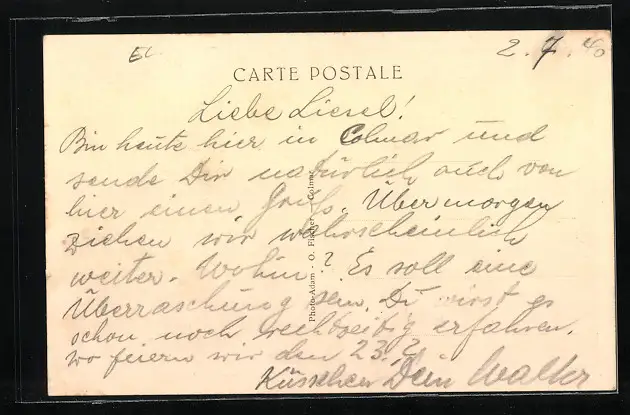 EL
2.7.40
CARTE POSTALE
Liebe Liesel!
Bin heute hier in Colmar und
sende Dir natürlich auch von
hier einen Gruß. Übermorgen
ziehen wir wahrscheinlich
weiter. Wohin? Es soll eine
Überraschung sein. Du wirst es
schon noch rechtzeitig erfahren.
wo feiern wir den 23.?
Küsschen Dein Walter
Photo-Adam - O. Fischer - Colmar